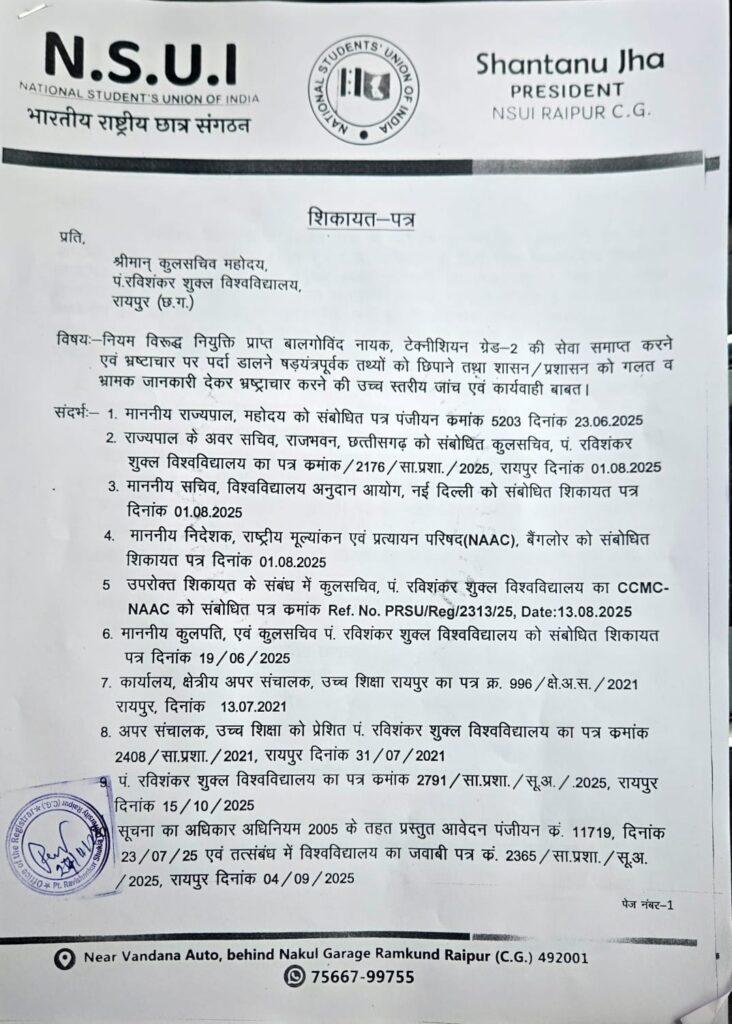 N.S.U.I
NATIONAL STUDENT'S UNION OF INDIA
भारतीय राष्ट्रीय छात्र संगठन
NATIONAL STUDENTS' UNION OF INDIA
Shantanu Jha
PRESIDENT
NSUI RAIPUR C.G.
शिकायत–पत्र
प्रति,
श्रीमान् कुलसचिव महोदय,
पं.रविशंकर शुक्ल विश्वविद्यालय,
रायपुर (छ.ग.)
विषयः–नियम विरूद्ध नियुक्ति प्राप्त बालगोविंद नायक, टेक्नीशियन ग्रेड–2 की सेवा समाप्त करने
एवं भ्रष्टाचार पर पर्दा डालने षड़यंत्रपूर्वक तथ्यों को छिपाने तथा शासन/प्रशासन को गलत व
भ्रामक जानकारी देकर भ्रष्ट्राचार करने की उच्च स्तरीय जांच एवं कार्यवाही बाबत।
संदर्भः– 1. माननीय राज्यपाल, महोदय को संबोधित पत्र पंजीयन कमांक 5203 दिनांक 23.06.2025
2. राज्यपाल के अवर सचिव, राजभवन, छत्तीसगढ़ को संबोधित कुलसचिव, पं. रविशंकर
शुक्ल विश्वविद्यालय का पत्र कमांक/2176/सा.प्रशा./2025, रायपुर दिनांक 01.08.2025
3. माननीय सचिव, विश्वविद्यालय अनुदान आयोग, नई दिल्ली को संबोधित शिकायत पत्र
दिनांक 01.08.2025
4. माननीय निदेशक, राष्ट्रीय मूल्यांकन एवं प्रत्यायन परिषद(NAAC), बैंगलोर को संबोधित
शिकायत पत्र दिनांक 01.08.2025
5 उपरोक्त शिकायत के संबंध में कुलसचिव, पं. रविशंकर शुक्ल विश्वविद्यालय का CCMC-
NAAC को संबोधित पत्र कमांक Ref. No. PRSU/Reg/2313/25, Date:13.08.2025
6. माननीय कुलपति, एवं कुलसचिव पं. रविशंकर शुक्ल विश्वविद्यालय को संबोधित शिकायत
पत्र दिनांक 19/06/2025
7. कार्यालय, क्षेत्रीय अपर संचालक, उच्च शिक्षा रायपुर का पत्र क्र. 996/क्षे.अ.स./2021
रायपुर, दिनांक 13.07.2021
8. अपर संचालक, उच्च शिक्षा को प्रेशित पं. रविशंकर शुक्ल विश्वविद्यालय का पत्र कमांक
2408/सा.प्रशा./2021, रायपुर दिनांक 31/07/2021
9. पं. रविशंकर शुक्ल विश्वविद्यालय का पत्र कमांक 2791/सा.प्रशा./सू.अ./.2025, रायपुर
दिनांक 15/10/2025
सूचना का अधिकार अधिनियम 2005 के तहत प्रस्तुत आवेदन पंजीयन कं. 11719, दिनांक
23/07/25 एवं तत्संबंध में विश्वविद्यालय का जवाबी पत्र कं. 2365/सा.प्रशा./सू.अ.
/2025, रायपुर दिनांक 04/09/2025
Office of the Registrar
Pt. Ravishankar Shukla University Raipur (C.G.)
पेज नंबर–1
Near Vandana Auto, behind Nakul Garage Ramkund Raipur (C.G.) 492001
75667-99755